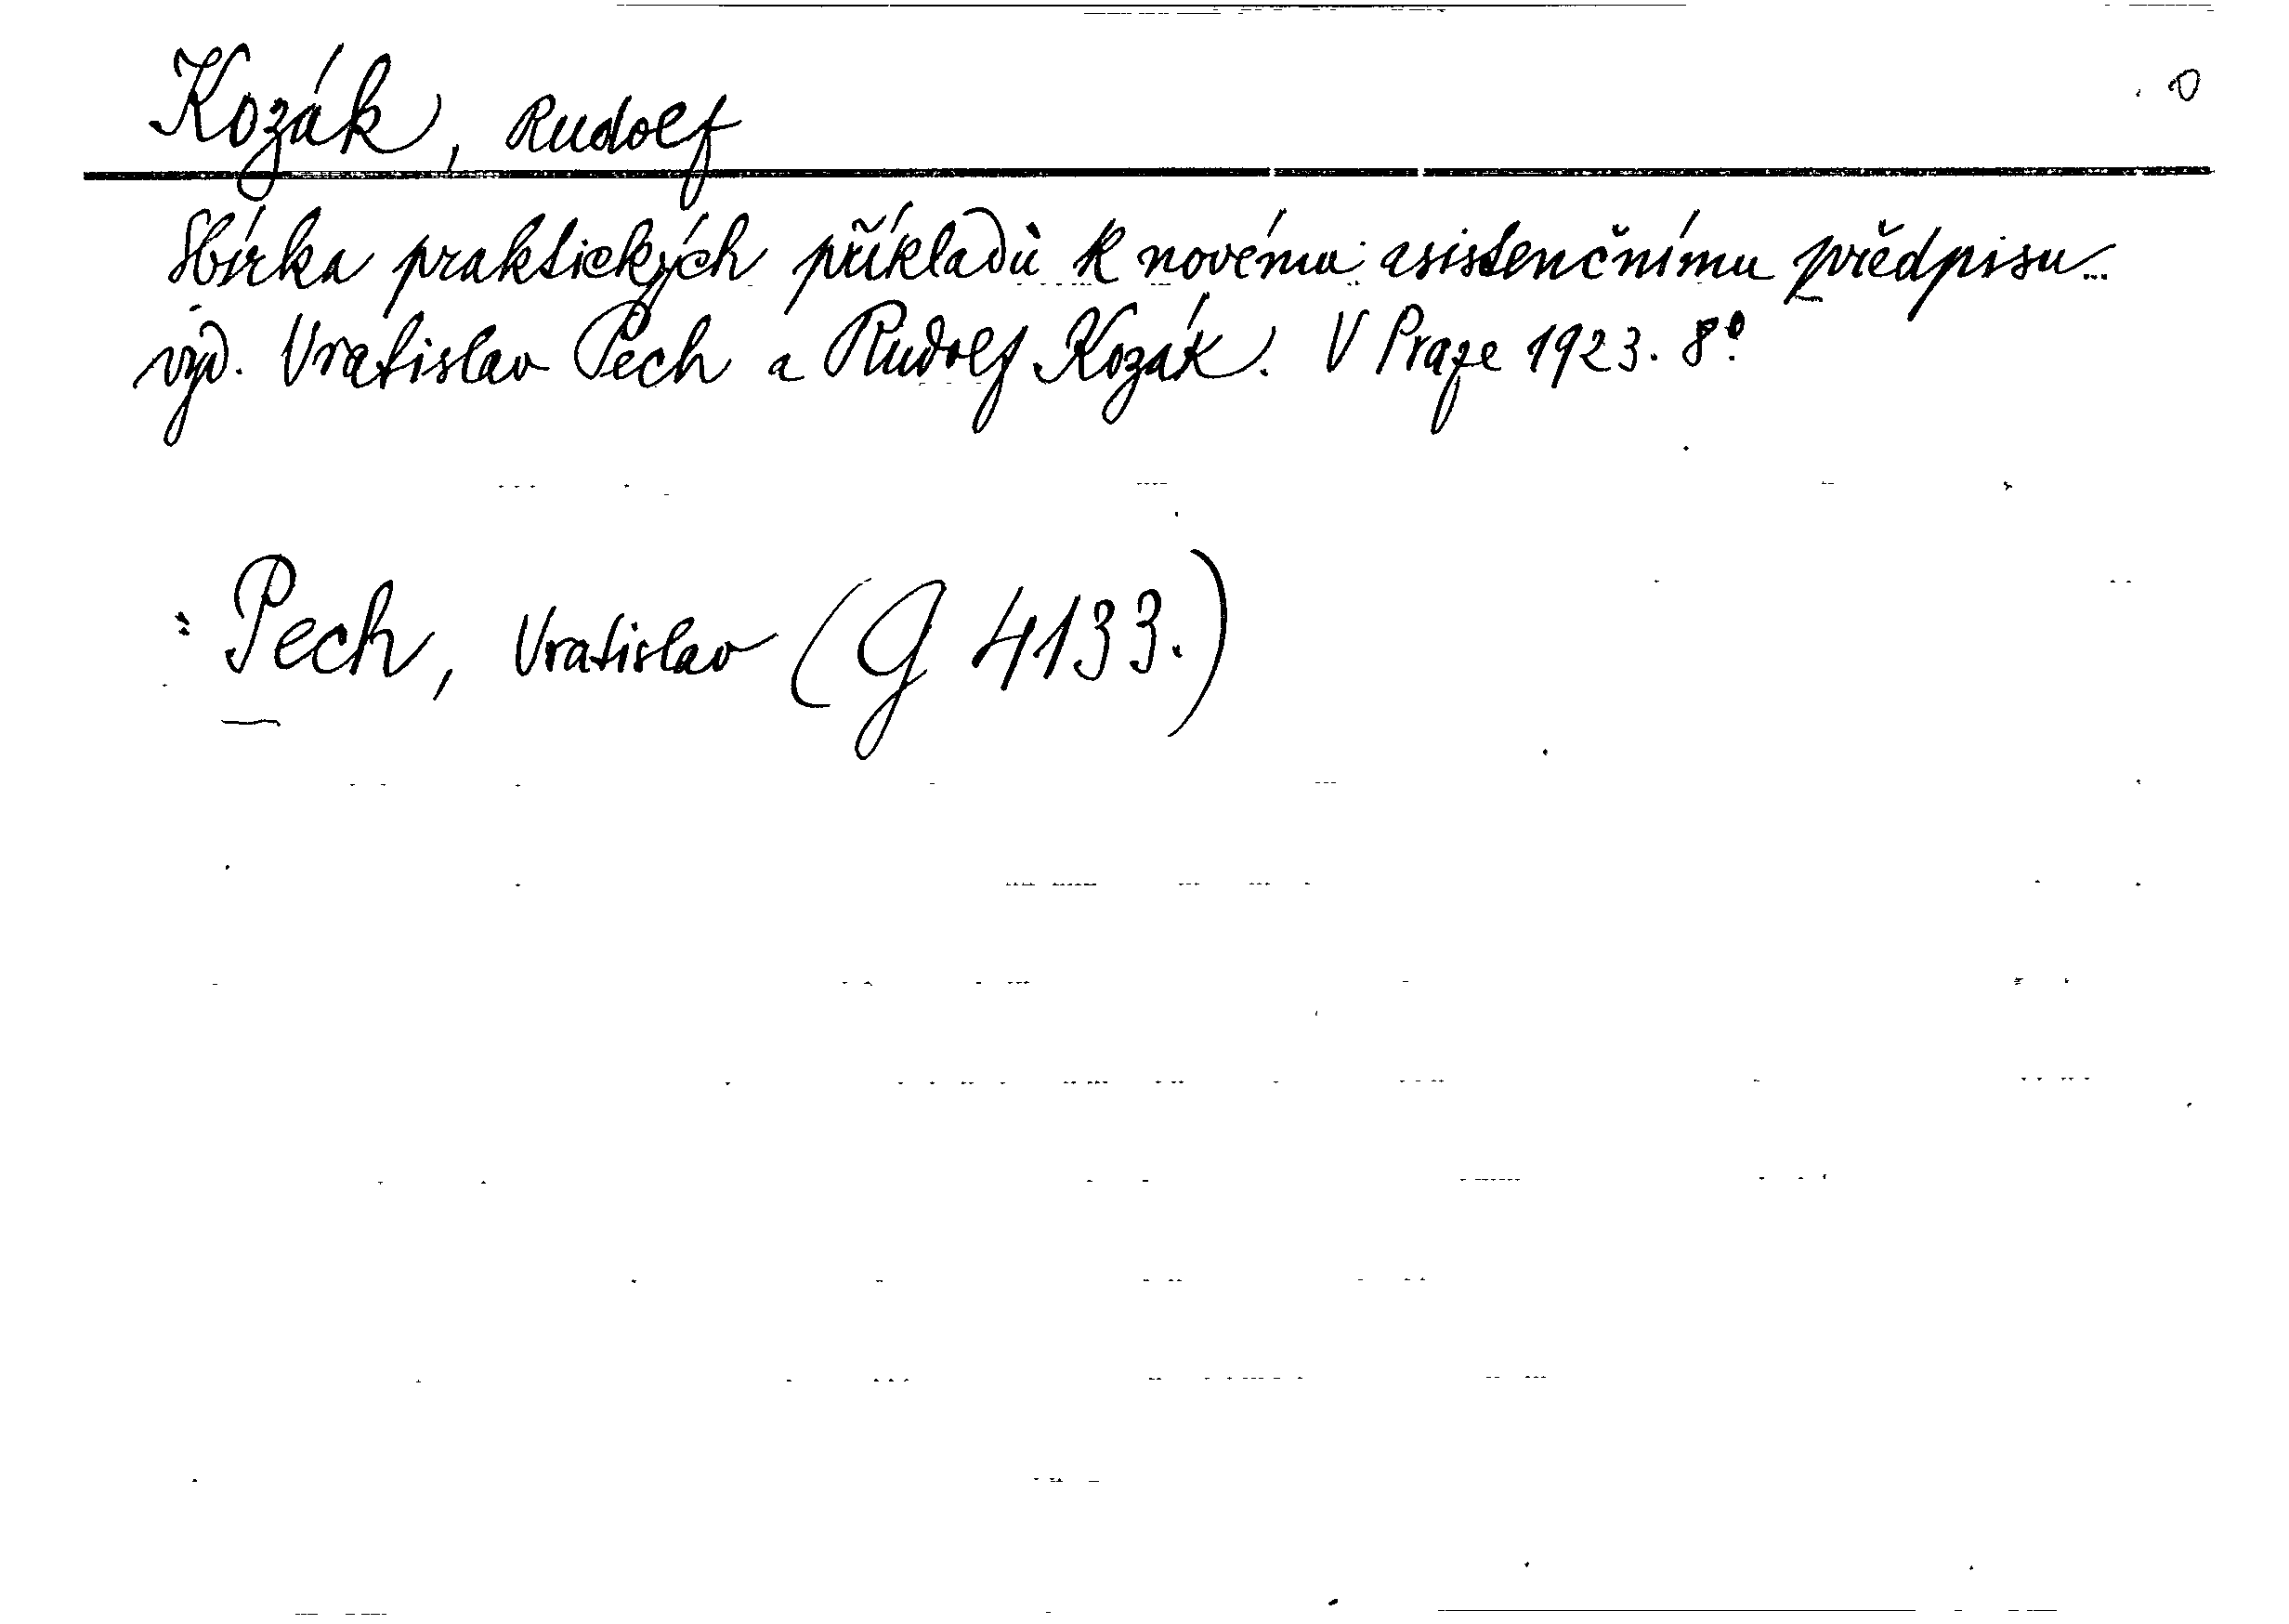 Kozák, Rudolf
Sbírka praktických příkladů k novému asistenčnímu předpisu...
vyd. Vratislav Pech a Rudolf Kozák. V Praze 1923. 8°.
: Pech, Vratislav (G 4133.)